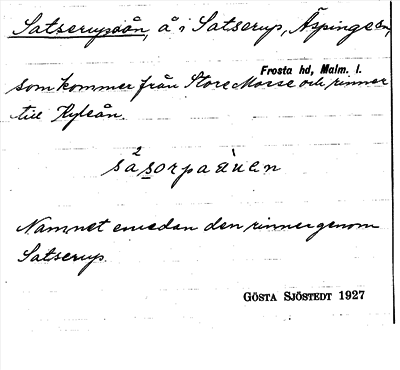 Satserupsån, å i Satserup, Äspinge sn,
Frosta hd, Malm. l.
som kommer från Store Mosse och rinner
till Hyleån.
Namnet emedan den rinner genom
Satserup.
GÖSTA SJÖSTEDT 1927